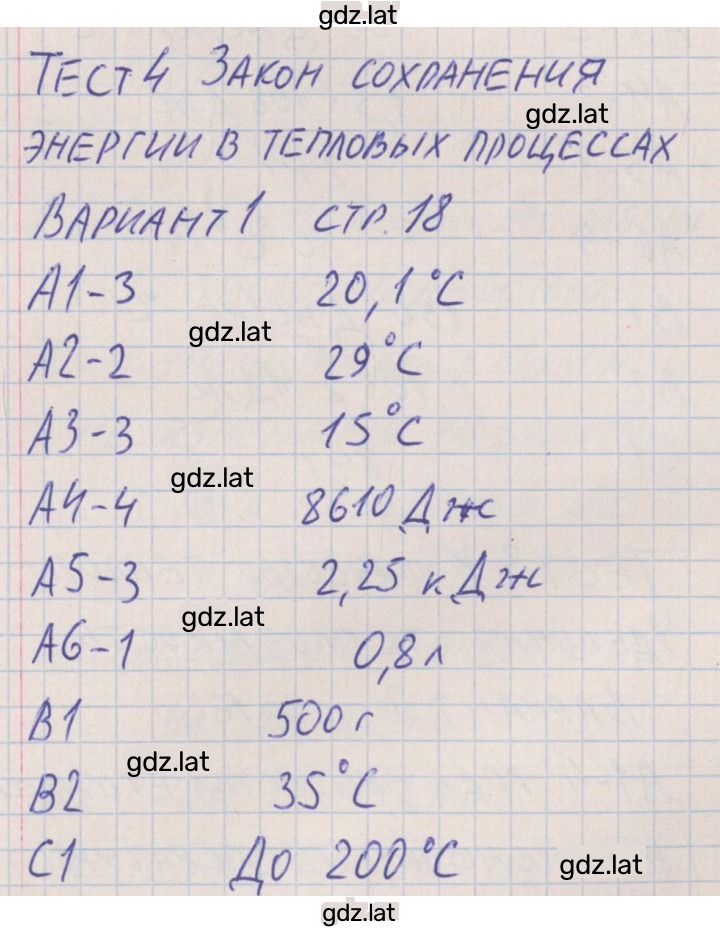 gdz.lat
ТЕСТ 4 ЗАКОН СОХРАНЕНИЯ
gdz.lat
ЭНЕРГИИ В ТЕПЛОВЫХ ПРОЦЕССАХ
ВАРИАНТ 1 СТР. 18
А1-3 20,1°С
gdz.lat
А2-2 29°С
А3-3 15°С
gdz.lat
А4-4 8610 Дж
А5-3 2,25 кДж
gdz.lat
А6-1 0,8 л
В1 500 г
gdz.lat
В2 35°С
С1 До 200°С
gdz.lat
gdz.lat